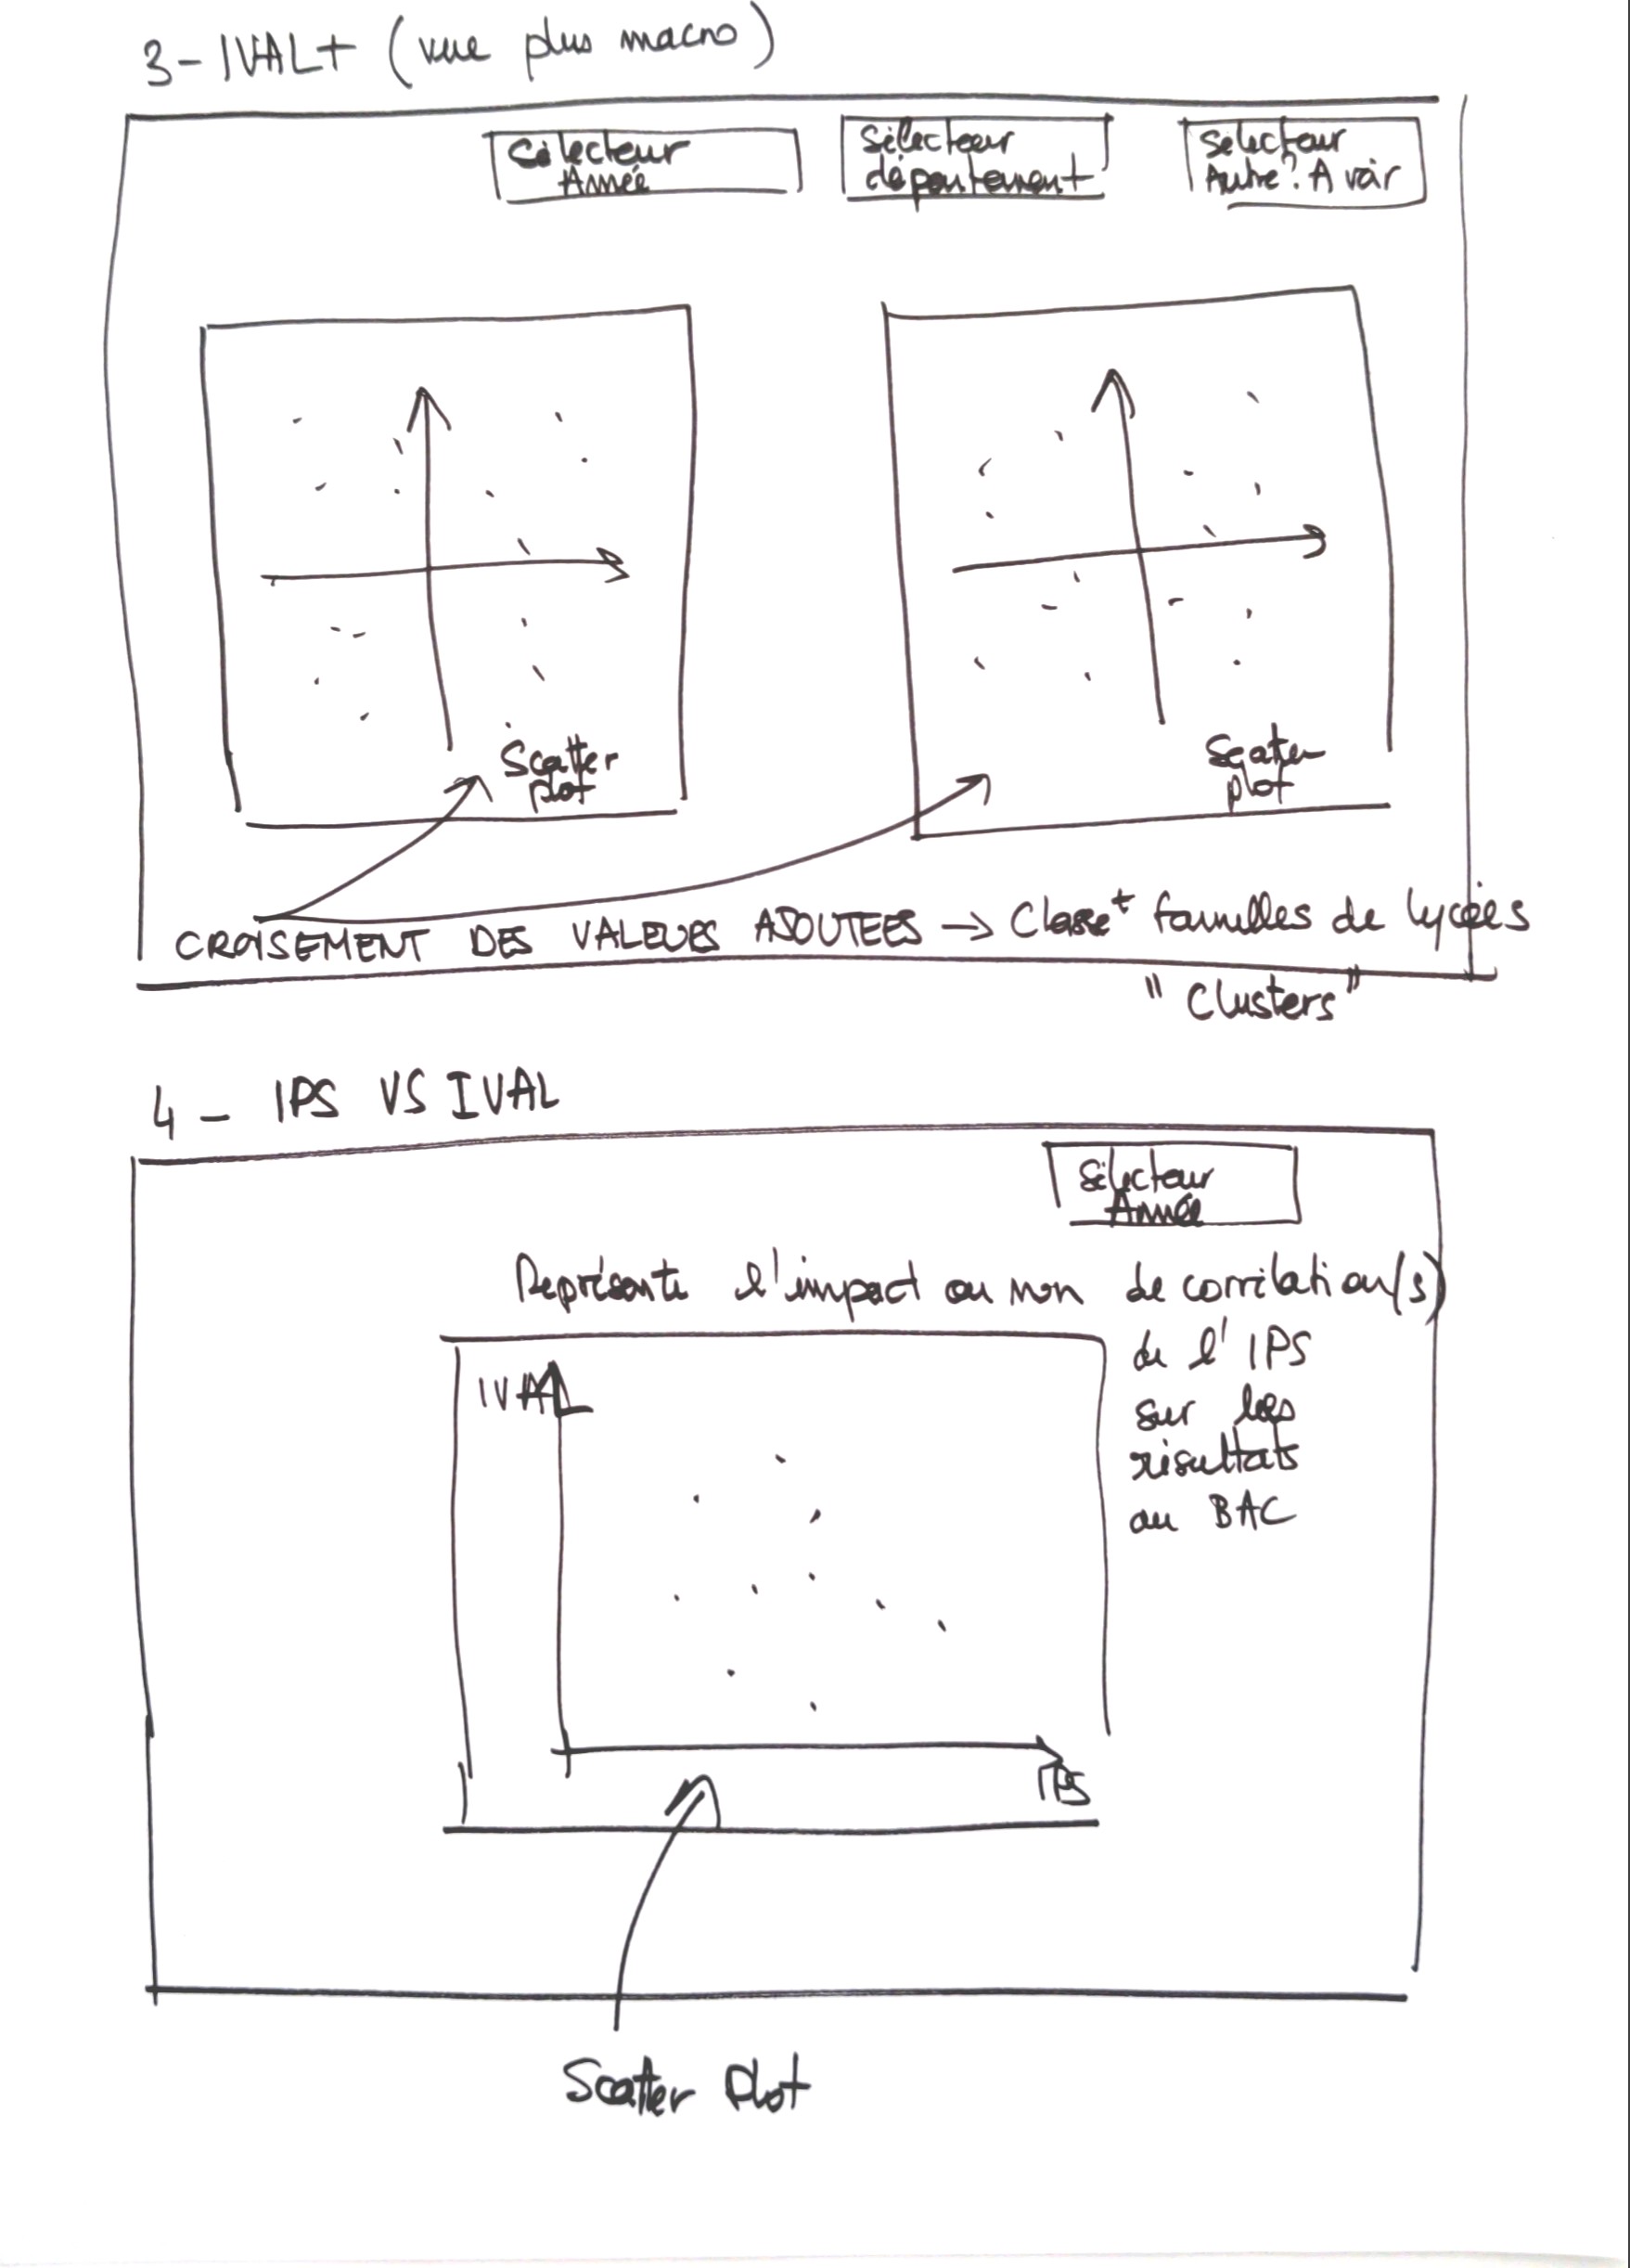 3- IVAL+ (vue plus macro)
Sélecteur
Année
Sélecteur
département
Sélecteur
Autre? A voir
Scatter
plot
Scater
plot
CROISEMENT DES VALEURS AJOUTEES → Classt familles de lycées
"Clusters"
4 - IPS VS IVAL
Sélecteur
Année
Représente l'impact ou non de corrélation(s)
de l'IPS
sur les
résultats
au BAC
IVAL
IPS
Scatter Plot